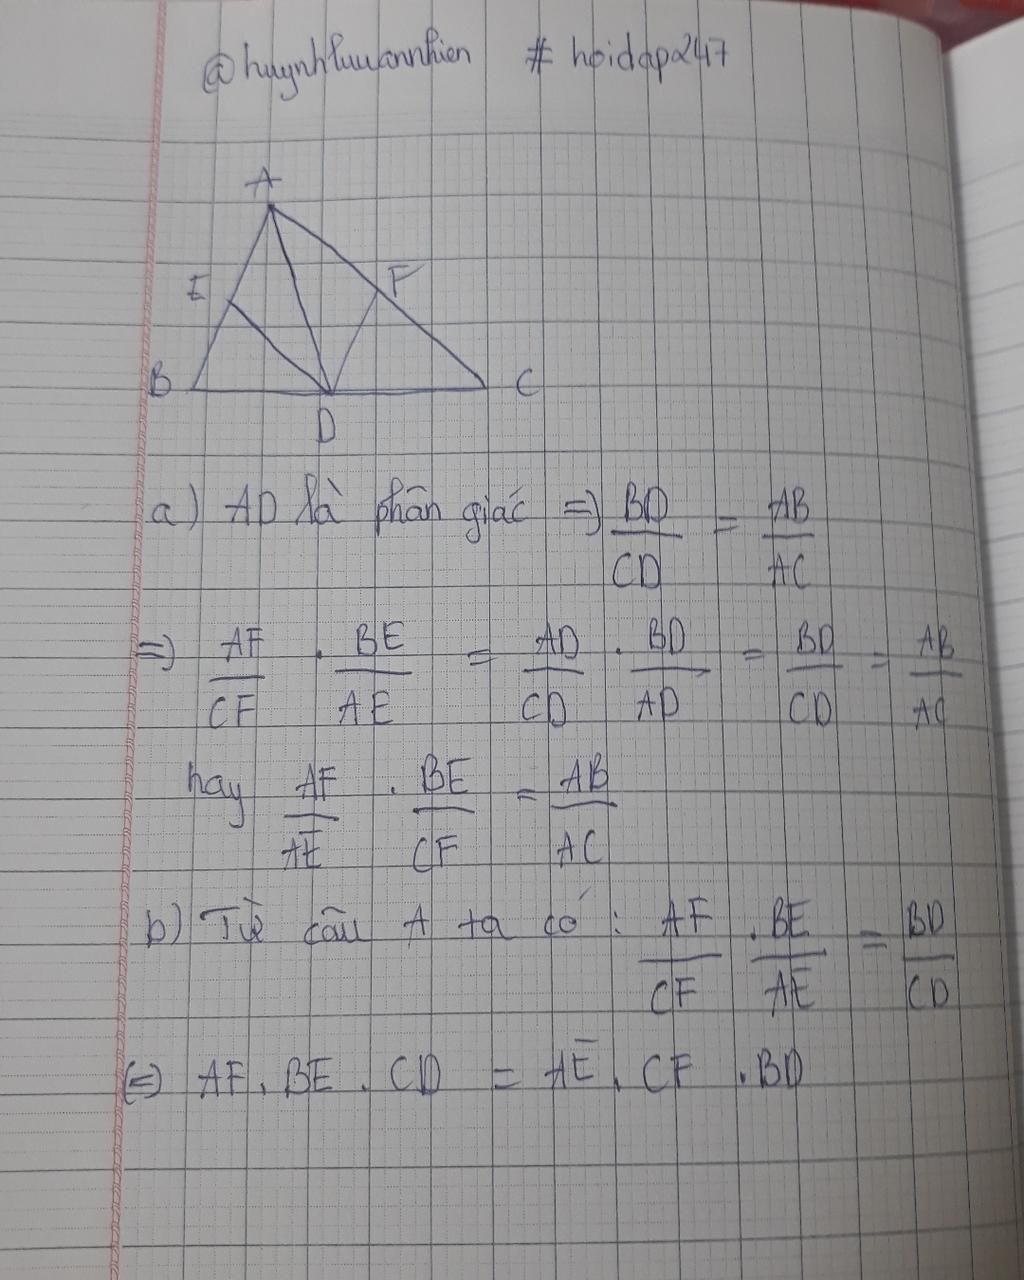 @huynhluuannhien # hoidap247
A
E F
B C
D
a) AD là phân giác => BD/CD = AB/AC
=> AF/CF . BE/AE = AD/CD . BD/AD = BD/CD = AB/AC
hay AF/AE . BE/CF = AB/AC
b) Từ câu A ta có : AF/CF . BE/AE = BD/CD
(=) AF . BE . CD = AE . CF . BD